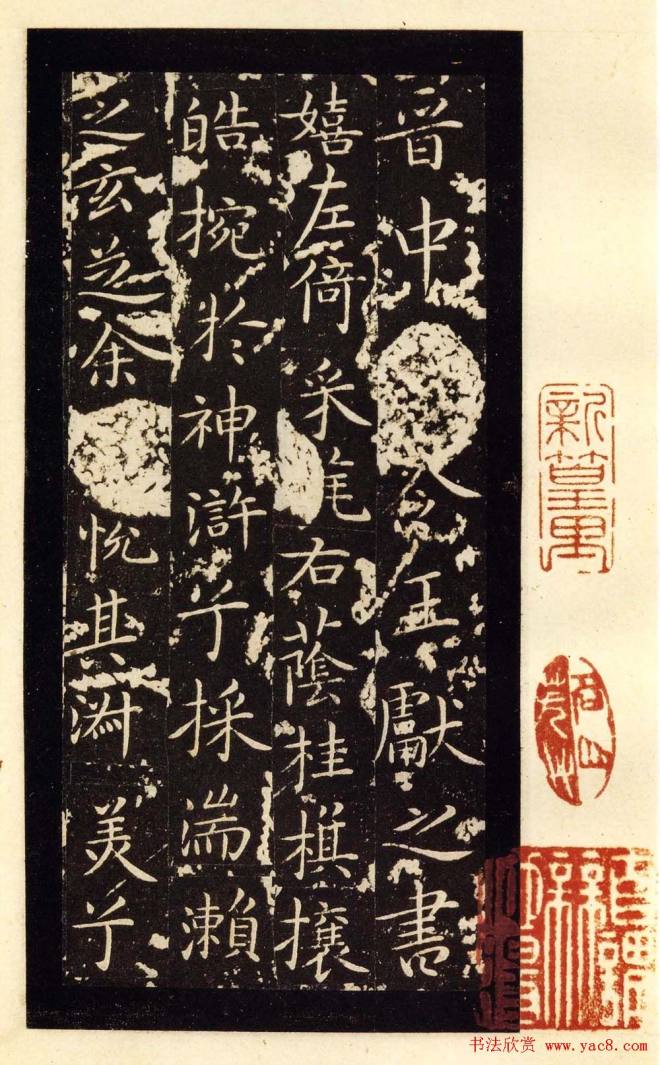 晉中
令王獻之書
嬉左倚采旄右蔭桂旗攘
皓捥於神滸兮採湍瀨
之玄芝余
悅其淑美兮
书法欣赏 www.yac8.com